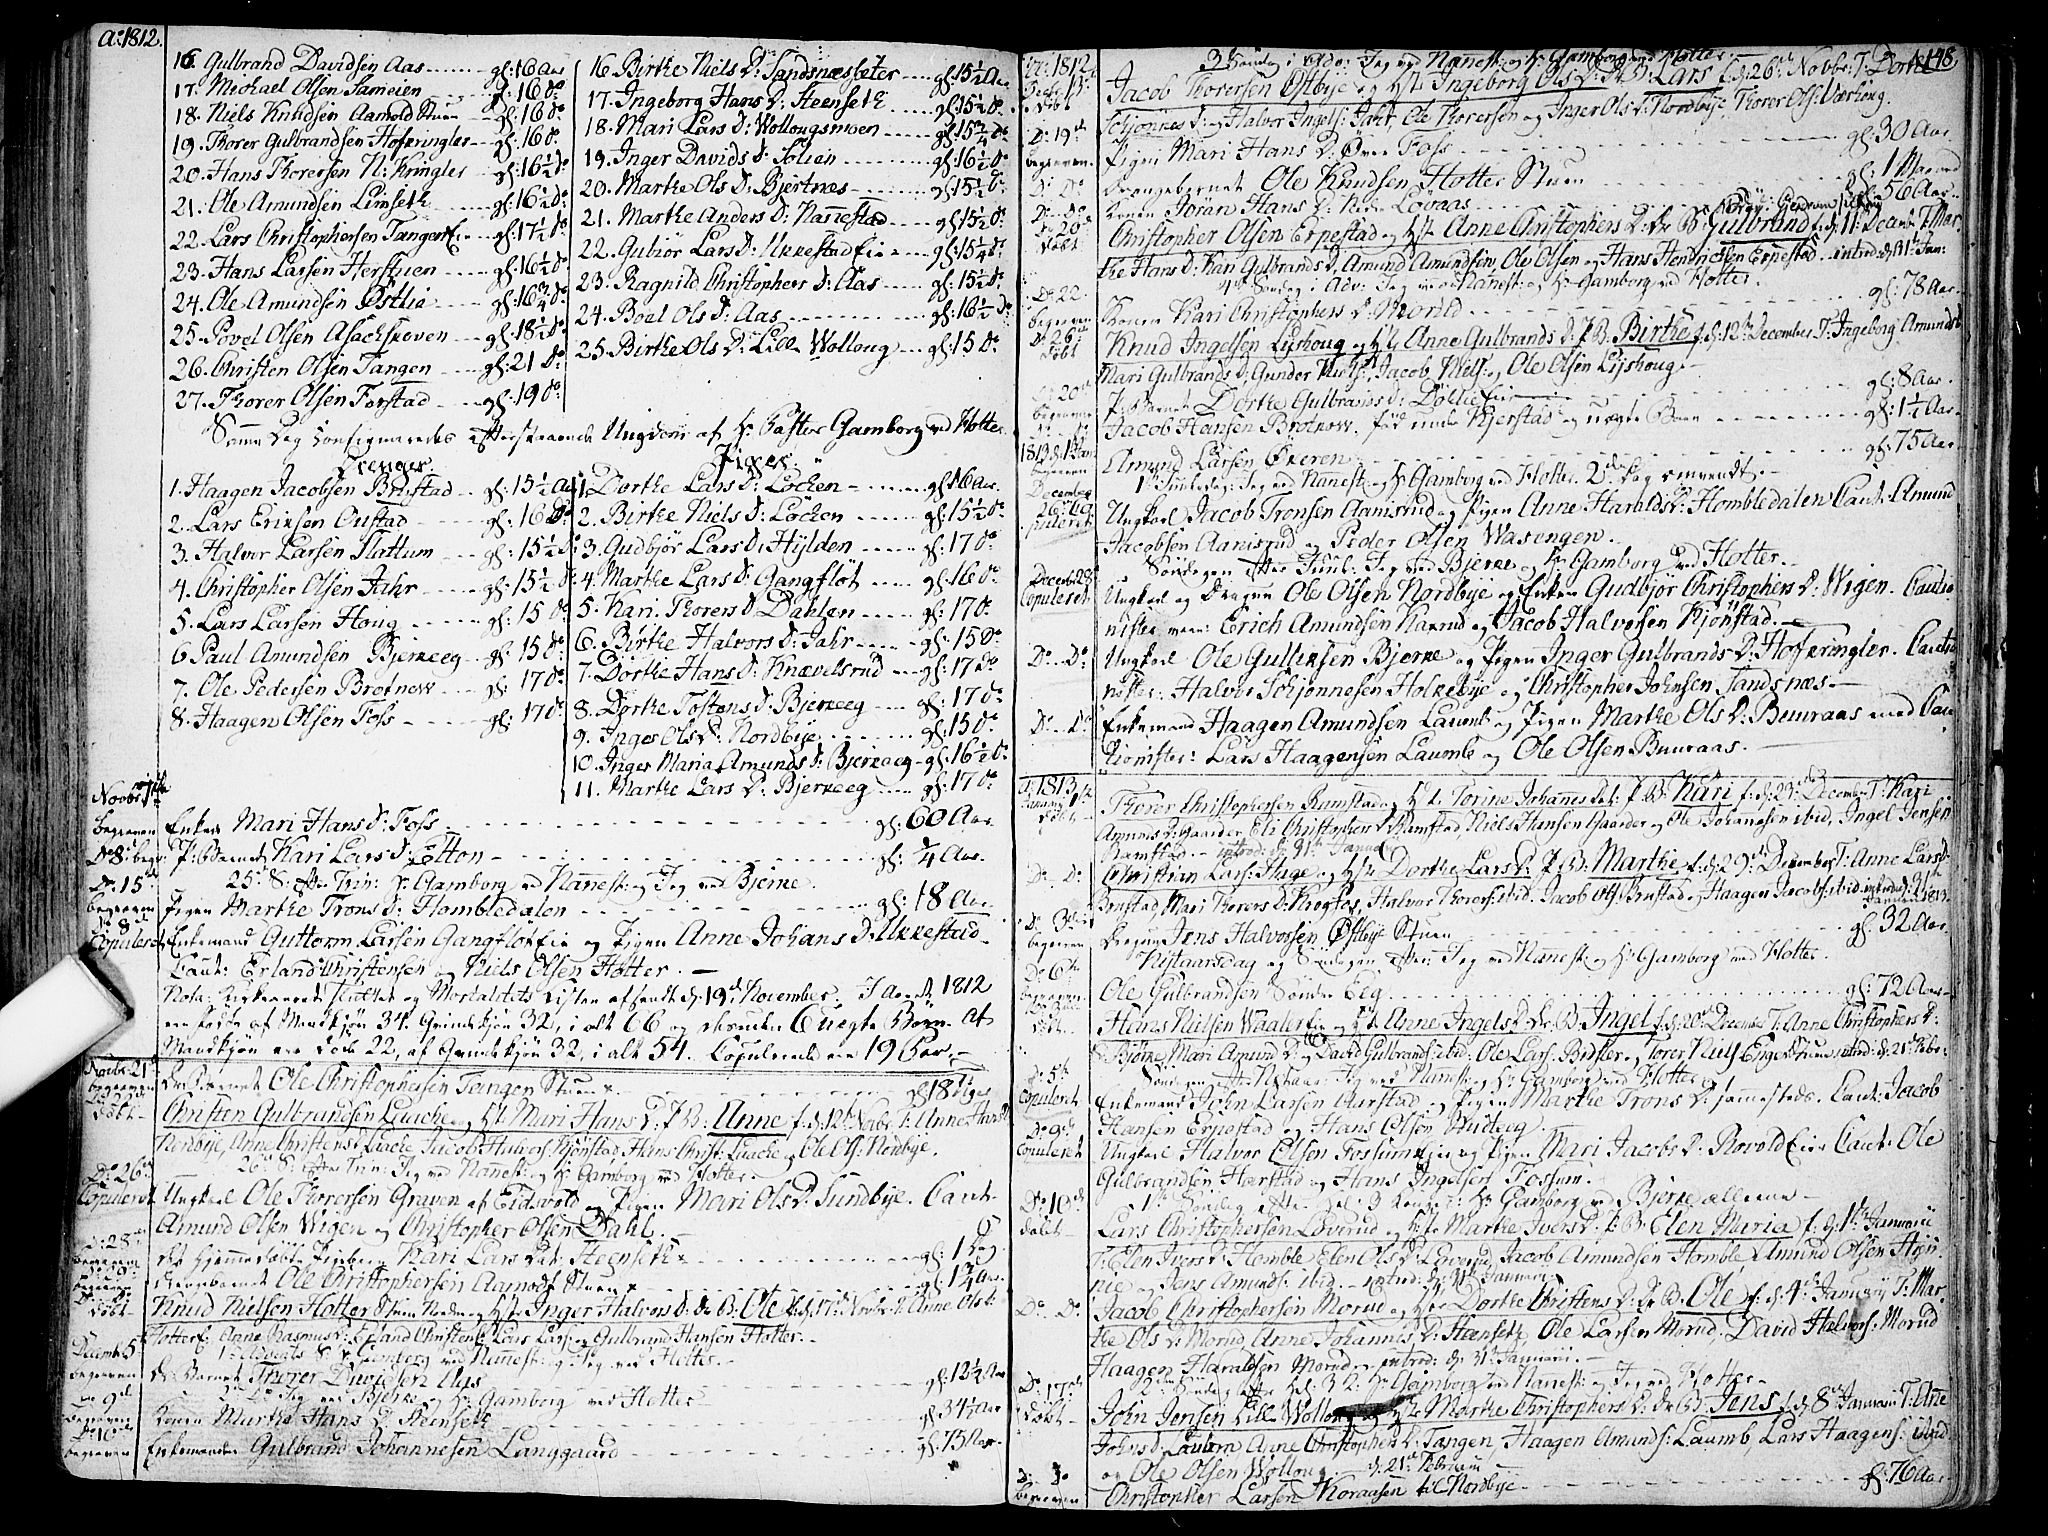 Ao 1812.
16. Gulbrand Davidsen Aas gl: 16 Aar
17. Michael Olsen Sameien gl: 16 do
18. Niels Knudsen Aamold Stuen gl: 16 do
19. Thorer Gulbrandsen Hofkringler gl: 16 do
20. Hans Thorersen N: Kringler gl: 16½ do
21. Ole Amundsen Limseth gl: 16½ do
22. Lars Christophersen Tangen Eie gl: 17½ do
23. Hans Larsen Herstuen gl: 16½ do
24. Ole Amundsen Østlie gl: 16¾ do
25. Povel Olsen Asachskoven gl: 18½ do
26. Christen Olsen Tangen gl: 21 do
27. Thorer Olsen Forstad gl: 19 do
16 Birthe Niels D: Sandsnæsseter gl: 15½ Aar
17. Ingeborg Hans D: Steenseth gl: 15½ do
18. Mari Lars D: Wollougsmoen gl: 15¾ do
19. Inger Davids D: Solien gl: 16½ do
20. Marthe Ols D: Bjertnes gl: 15½ do
21. Marthe Anders D: Nannestad gl: 15½ do
22. Gubiør Lars D: Ukkestad Eie gl: 15¼ do
23. Ragnild Christophers D: Aas gl: 15½ do
24. Boel Ols D: Aas gl: 16½ do
25. Birthe Ols D: Lille Wolloug gl: 15 do
Samme Dag confirmeredes efterstaaende Ungdom af Hr Pastor Gamborg ved Holter
Drenger
1. Haagen Jacobsen Brustad gl: 15½ Aar
2. Lars Eriksen Oustad gl: 16 do
3. Halvor Larsen Slattum gl: 15½ do
4. Christopher Olsen Jahr gl: 15½ do
5. Lars Larsen Houg gl: 15 do
6 Paul Amundsen Bjerkeeg gl: 15 do
7. Ole Pedersen Brotnow gl: 17 do
8. Haagen Olsen Foss gl: 17 do
Piger
1. Dorthe Lars D: Løchen gl: 16 Aar
2. Birthe Niels D: Løchen gl: 15½ do
3. Gudbjør Lars D: Hylden gl: 17 do
4. Marthe Lars D: Gangfløt gl: 16 do
5. Kari Thorers D: Dahlen gl: 17 do
6. Birthe Halvors D: Jahr gl: 15 do
7. Dorthe Hans D: Knævelsrud gl: 17 do
8. Dorthe Tostens D: Bjerkeeg gl: 17 do
9. Inger Ols D: Nordbye gl: 15 do
10. Inger Maria Amunds D: Bjerkeeg gl: 16½ do
11. Marthe Lars D: Bjerkeeg gl: 17 do
begraven Enken Mari Hans D: Foss gl: 60 Aar
Do 8 begr: P: Barnet Kari Lars D: Etton gl: ¼ Aar.
25de S. efter Trin: Hr Gamborg ved Nannest: og Jeg ved Bjerke.
Do 15de begraven Pigen Marthe Trons D: Hombledalen gl: 18 Aar
Copuleret Enkemand Guttorm Larsen Gangfløt Eie og Pigen Anne Johans D: Ukkestad
Caut: Erland Christensen og Niels Olsen Holter.
Nota: og Mortalitets Listen afsendt d: 19de November. I Aaret 1812
ere fødte af Mandkjøn 34. Qvindekjøn 32, i alt 66 og derunder 6 uægte Børn. Af
Mandkjøn ere døde 22, af Qvindekjøn 32, i alt 54. Copulerede ere 19 Par.
Novbr. 21de begraven Dr: Barnet Ole Christophersen Tangen Stuen
Døbt Christen Gulbrandsen Luache og Hst: Mari Hans D: P: B: Anne f. d: 12te Novbr: T: Anne Hans D:
Nordbye, Anne Christens D: Luache, Jacob Halvors: Kjønstad, Hans Christ: Luache og Ole Ols: Nordbye.
26de S: efter Trin: Jeg ved Nannest: og Hr Gamborg ved Holter.
Do 26de Copuleret Ungkarl Ole Thorersen Graven af Eidsvold og Pigen Mari Ols D: Sundbye. Caut:
Amund Olsen Wigen og Christopher Olsen Dahl.
Do 28de det hjemmedøbte Pigebarn Kari Lars Dat: Steenseth gl: 1 Dag
Drengebarnet Ole Christophersen Aamodt Stuen gl: 1½ Aar
Døbt Knud Nielsen Holter Stuen Neder og Hst: Inger Halvors D: Dr: B: Ole f: d: 17de Novbr: T: Anne Ols D:
Holter E: Anne Rasmus D: Erland Christens: Lars Lars: og Gulbrand Hansen Holter.
1ste Advents S: Hr Gamborg ved Nannest: og Jeg ved Holter.
Decembr 5 begraven Dr: Barnet Thorer Davidsen Aas gl: 12¼ Aar
2den Do Jeg ved Bjerke og Hr Gamborg ved Holter
Do 9de begraven Konen Marthe Hans D: Steenseth gl: 34½ Aar
Do 10de begraven Enkemanden Gulbrand Johannesen Langgaard gl: 75 Aar
Ao: 1812
148
3 Søndag i Adv: Jeg ved Nannest: og Hr Gamborg ved Holter.
døbt Jacob Thorersen Østbye og Hst: Ingeborg Ols D: Dr: B: Lars f. d: 26de Novbr: T: Dorthe
Schjønnes D: og Halvor Ingels: Jahr, Ole Thorersen og Inger Ols D: Nordbye, Thorer Ols: Værhoug.
Do 19de begraven Pigen Mari Hans D: Øvre Foss gl: 30 Aar
Do Do Drengebarnet Ole Knudsen Holter Stuen gl: 1 Maaned
Do Do Konen Jøran Hans D: Nedre Lovaas gl: 56 Aar
Do 20de Døbt Christopher Olsen Erpestad og Hst: Anne Christophers D: Dr: B: Gulbrand f. d: 11te Decembr T: Mar
the Hans D: Kari Gulbrands D: Amund Amundsen, Ole Olsen og Hans Hendrichsen Erpestad. introd: d: 31te Jan:
4de Søndag i Adv: Jeg ved Nannest: og Hr Gamborg ved Holter.
Do 22. begraven Konen Kari Christophers D: Morud gl: 78 Aar
Do 26de Døbt Knud Ingelsen Lysehoug og Hst: Anne Gulbrands D: P: B: Birthe f. d: 12te December T: Ingeborg Amunds D
Mari Gulbrands D: Gunder Niels:, Jacob Niels: og Ole Olsen Lysehoug.
begraven P: Barnet Dorthe Gulbrands D: Døllie Eie gl: 8 Aar.
Jacob Hansen Brotnow. født under Kjerstad og uægte Barn gl: 1¼ Aar
1813 d: 1 Jan begraven Amund Larsen Økeren gl: 75 Aar
1ste Juuledag: Jeg ved Nannest: og Hr Gamborg ved Holter. 2den Dag omvendt.
December 26de Copuleret Ungkarl Jacob Tronsen Aamisrud og Pigen Anne Haralds D: Hombledalen Caut: Amund
Jacobsen Aamisrud og Peder Olsen Wasengen.
Søndagen efter Juul: Jeg ved Bjerke og Hr Gamborg ved Holter.
Decembr 28 Copuleret Ungkarl og Dragon Ole Olsen Nordbye og Enken Gudbjør Christophers D: Wigen. Cautio
nister vare: Erich Amundsen Kaxrud og Jacob Halvorsen Kjønstad.
Do Do Ungkarl Ole Gulliksen Bjerke og Pigen Inger Gulbrands D: Hofkringler. Cautio
nister: Halvor Schjønnesen Holkebye og Christopher Johnsen Sandsnæs
Do Do Enkemand Haagen Amundsen Laumb og Pigen Marthe Ols D: Buuraas med Cau
tionister: Lars Haagensen Laumb og Ole Olsen Buuraas.
Ao: 1813
Døbt Thorer Christophersen Ramstad og Hst: Torine Johannes Dat: P: B: Kari f: d: 23de December T: Kari
Amunds D: Gaarder, Eli Christophers D: Ramstad, Niels Hansen Gaarder og Ole Johannesen ibid, Ingel Jensen
Ramstad. introd: d: 31te Januar
Do Do Christian Lars: Huge og Hst: Dorthe Lars D: P: B: Marthe f: d: 29de December T: Anne Lars D:
Brustad, Mari Thorers D: Krogfos, Halvor Thorers: ibid. Jacob Ols: Brustad og Haagen Jacobs: ibid. introd: d: 31te Januar 1813
Do 3die begraven Dragon Jens Halvorsen Østbye Stuen gl: 32 Aar
Nytaarsdag og Søndagen efter: Jeg ved Nannest: og Hr Gamborg ved Holter.
Do 6te begraven Ole Gulbrandsen Søndre Eeg gl: 72 Aar
Døbt Hans Nielsen Waaler Eie og Hst: Anne Ingels D: Dr: B: Ingel f: d: 20de December T: Anne Christophers D:
Bjørke, Mari Amund D: og David Gulbrands: ibid. Ole Lars: Birsler og Torer Niels: introd: d: 21de Febr:
Søndagen efter Nytaar: Jeg ved Nannest: og Hr Gamborg ved Holter
Do 5te Copuleret Enkemand John Larsen Hurstad og Pigen Marthe Trons D: sammesteds. Caut: Jacob
Hansen Erpestad og Hans Olsen Hvideeg.
Do 9de Copuleret Ungkarl Halvor Olsen Fossum Eie og Pigen Mari Jacobs D: Rovold Eie Caut: Ole
Gulbrandsen Harstad og Hans Ingelsen Fossum.
1ste Søndag efter Hel: 3 Konger: Hr Gamborg ved Bjerke allene
Do 10de døbt Lars Christophersen Lovrud og Hst: Marthe Ivers D: P: B: Elen Maria f: d: 1ste Januarii
T: Elen Ivers D: Homble, Elen Ols D: Lovrud, Jacob Amundsen Homble, Amund Olsen
og Jens Amunds: ibid. introd: d: 31te Januarii
Do Do Jacob Christophersen Morud og Hst: Dorthe Christens D: Dr: B: Ole f: d: 4de Januarii T: Mar
the Ols D: Morud, Anne Johannes D: Steenseth, Ole Larsen Morud, David Halvors: Morud
Haagen Haraldsen Morud. introd: d: 31te Januarii.
2den Søndag efter Hel: 3 K: Hr Gamborg ved Nannest: og Jeg ved Holter
Do 17de døbt John Jensen Lille Wolloug og Hst: Marthe Christophers D: Dr: B: Jens f: d: 8de Januarii T: Anne
Johns D: Laumb, Anne Christophers D: Tangen, Haagen Amunds: Laumb, Lars Haagens: ibid
og Ole Olsen Wolloug. d: 21de Februarii
begraven Christopher Larsen Koraasen til Nordbye gl: 76 Aar